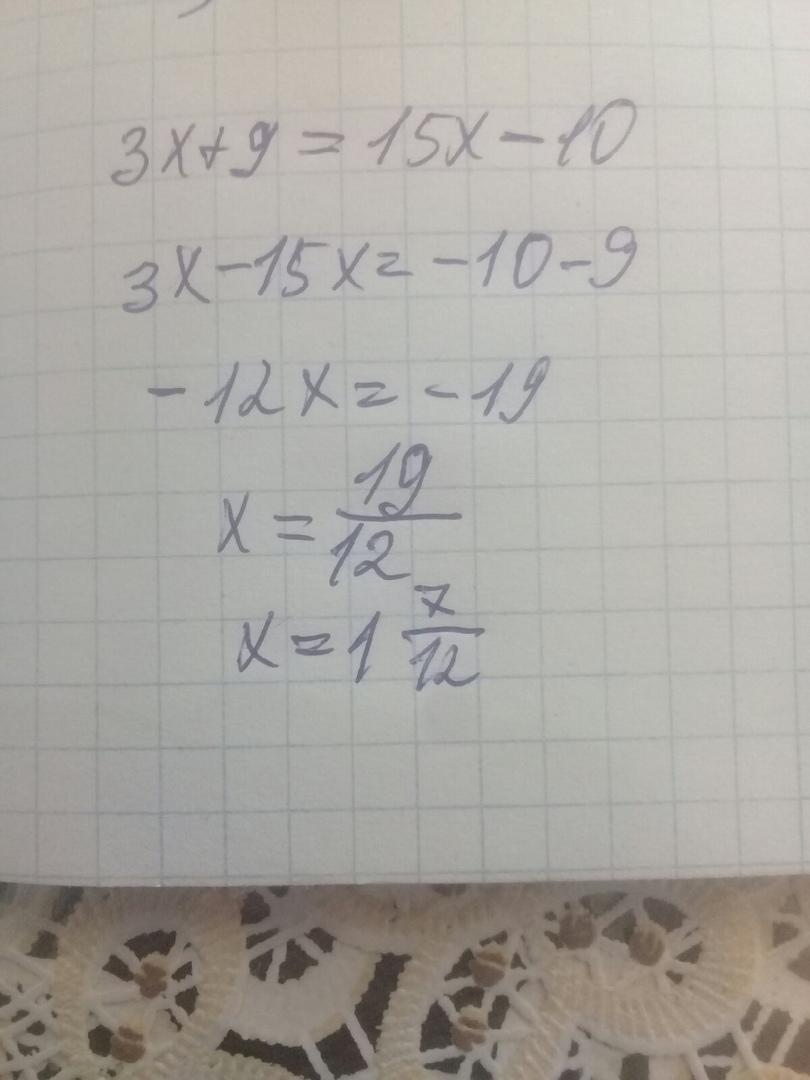 3x+9=15x-10
3x-15x=-10-9
-12x=-19
x=19/12
x=1 7/12